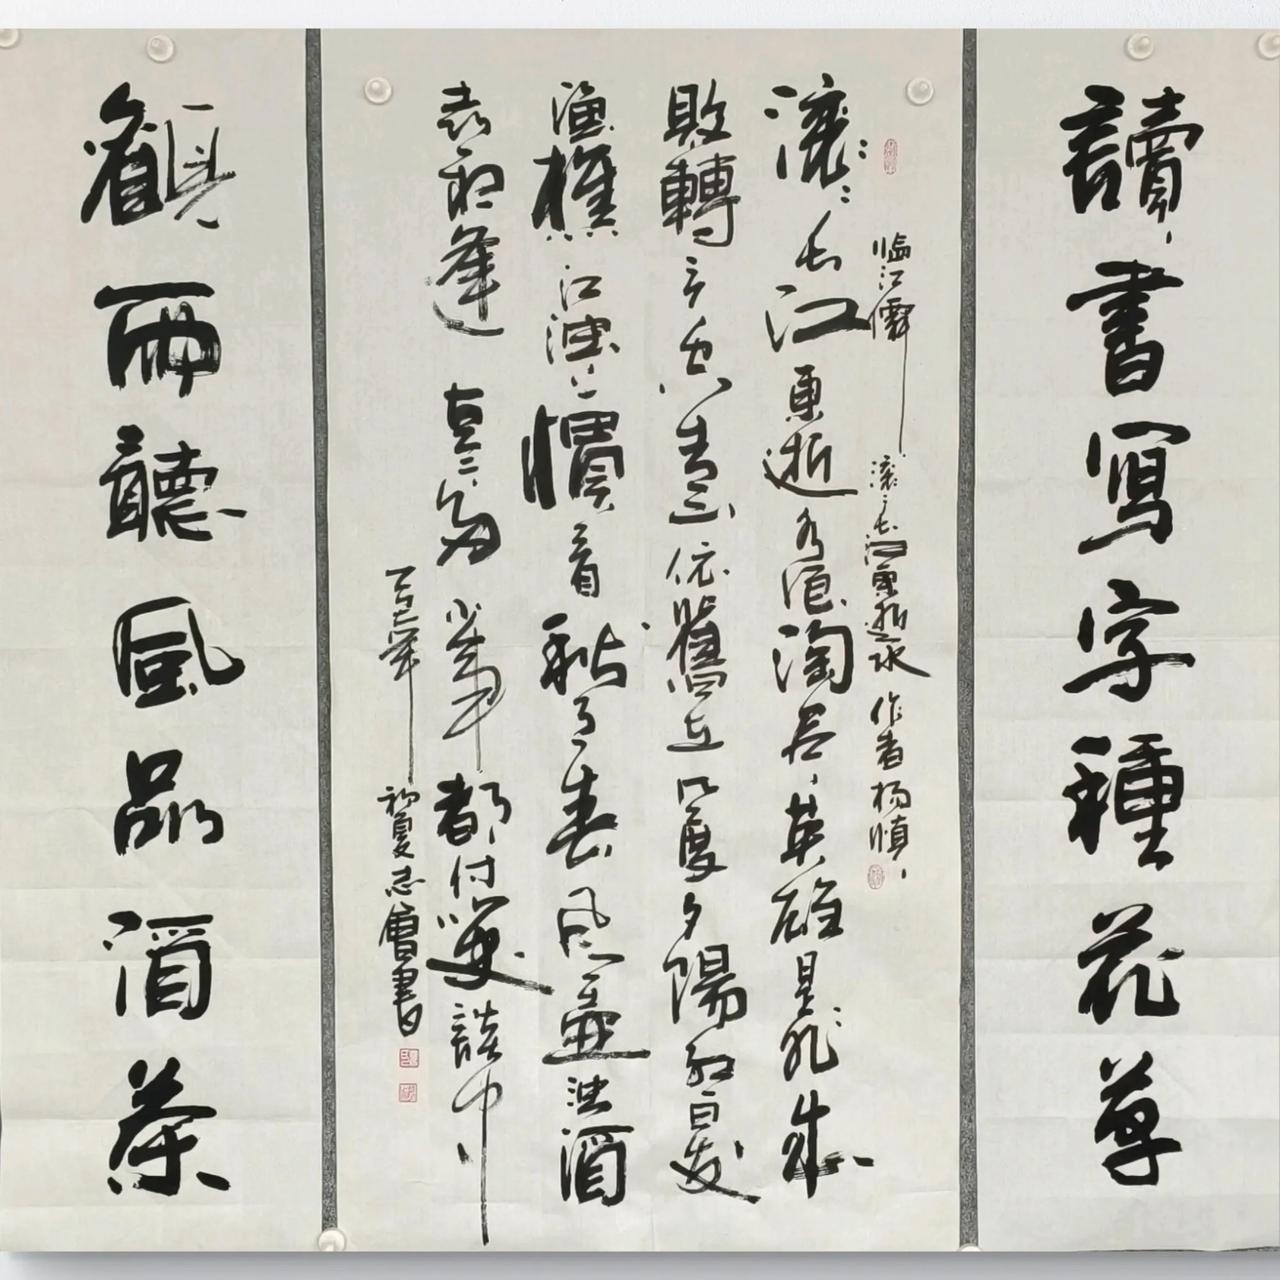 讀書寫字種花草
临江僊 滚滚长江東逝水 作者杨慎
滚滚长江東逝水浪淘尽英雄是非成
敗轉头空青山依舊在几度夕陽红白发
渔樵江渚上慣看秋月春风一壶浊酒
喜相逢古今多少事都付笑談中
乙巳年初夏志書
觀雨聽風品酒茶